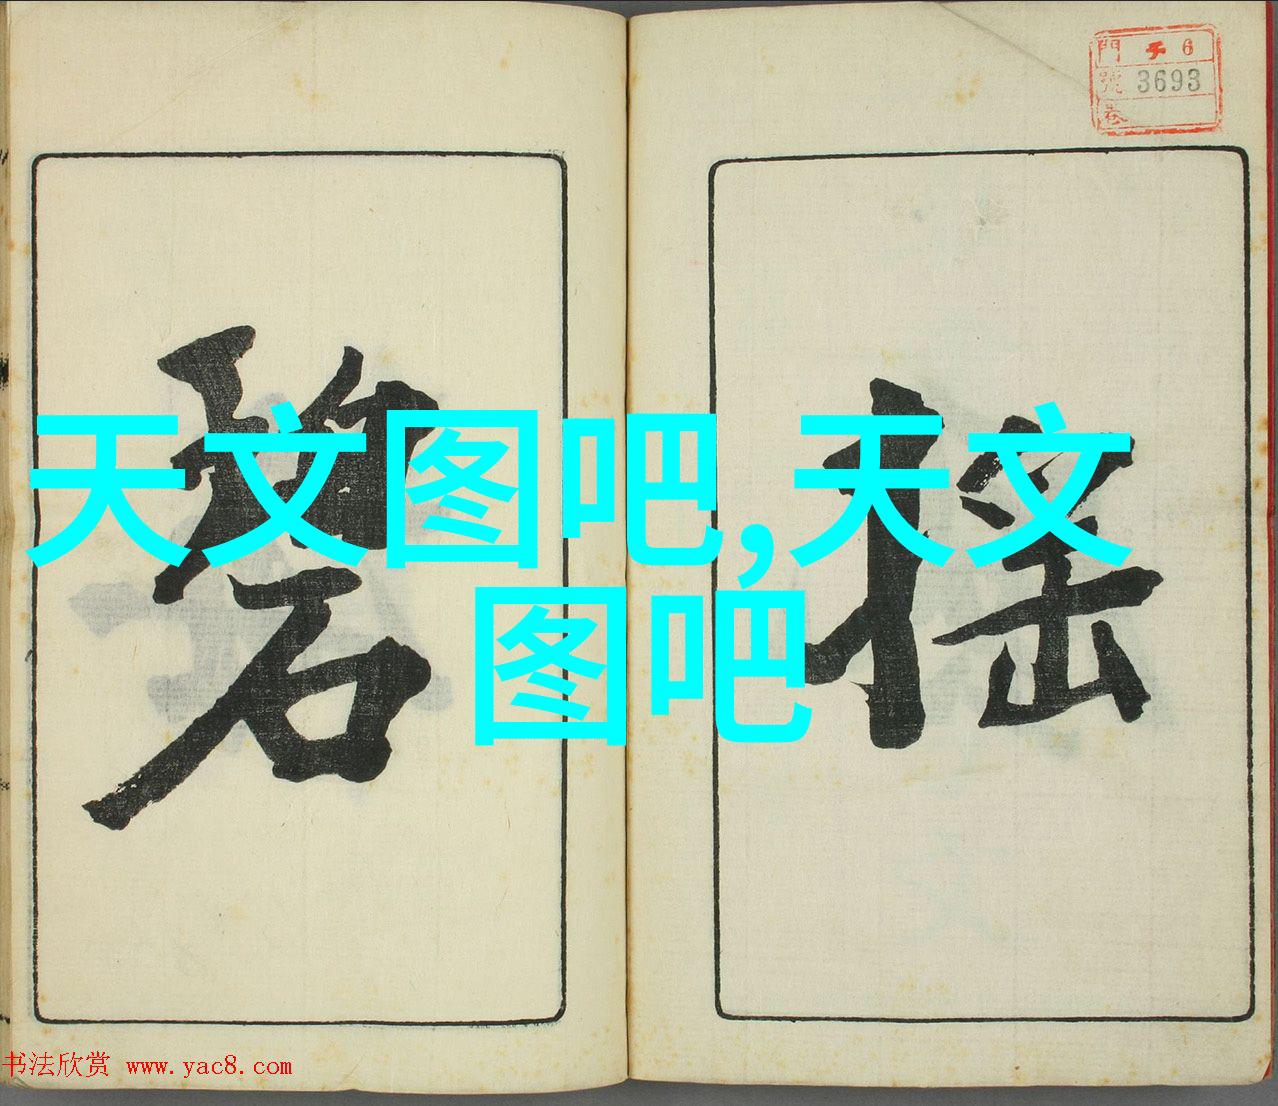 門 チ 6
號 3693
卷
搖
碧
天文图吧,天文
图吧
书法欣赏 www.yac8.com